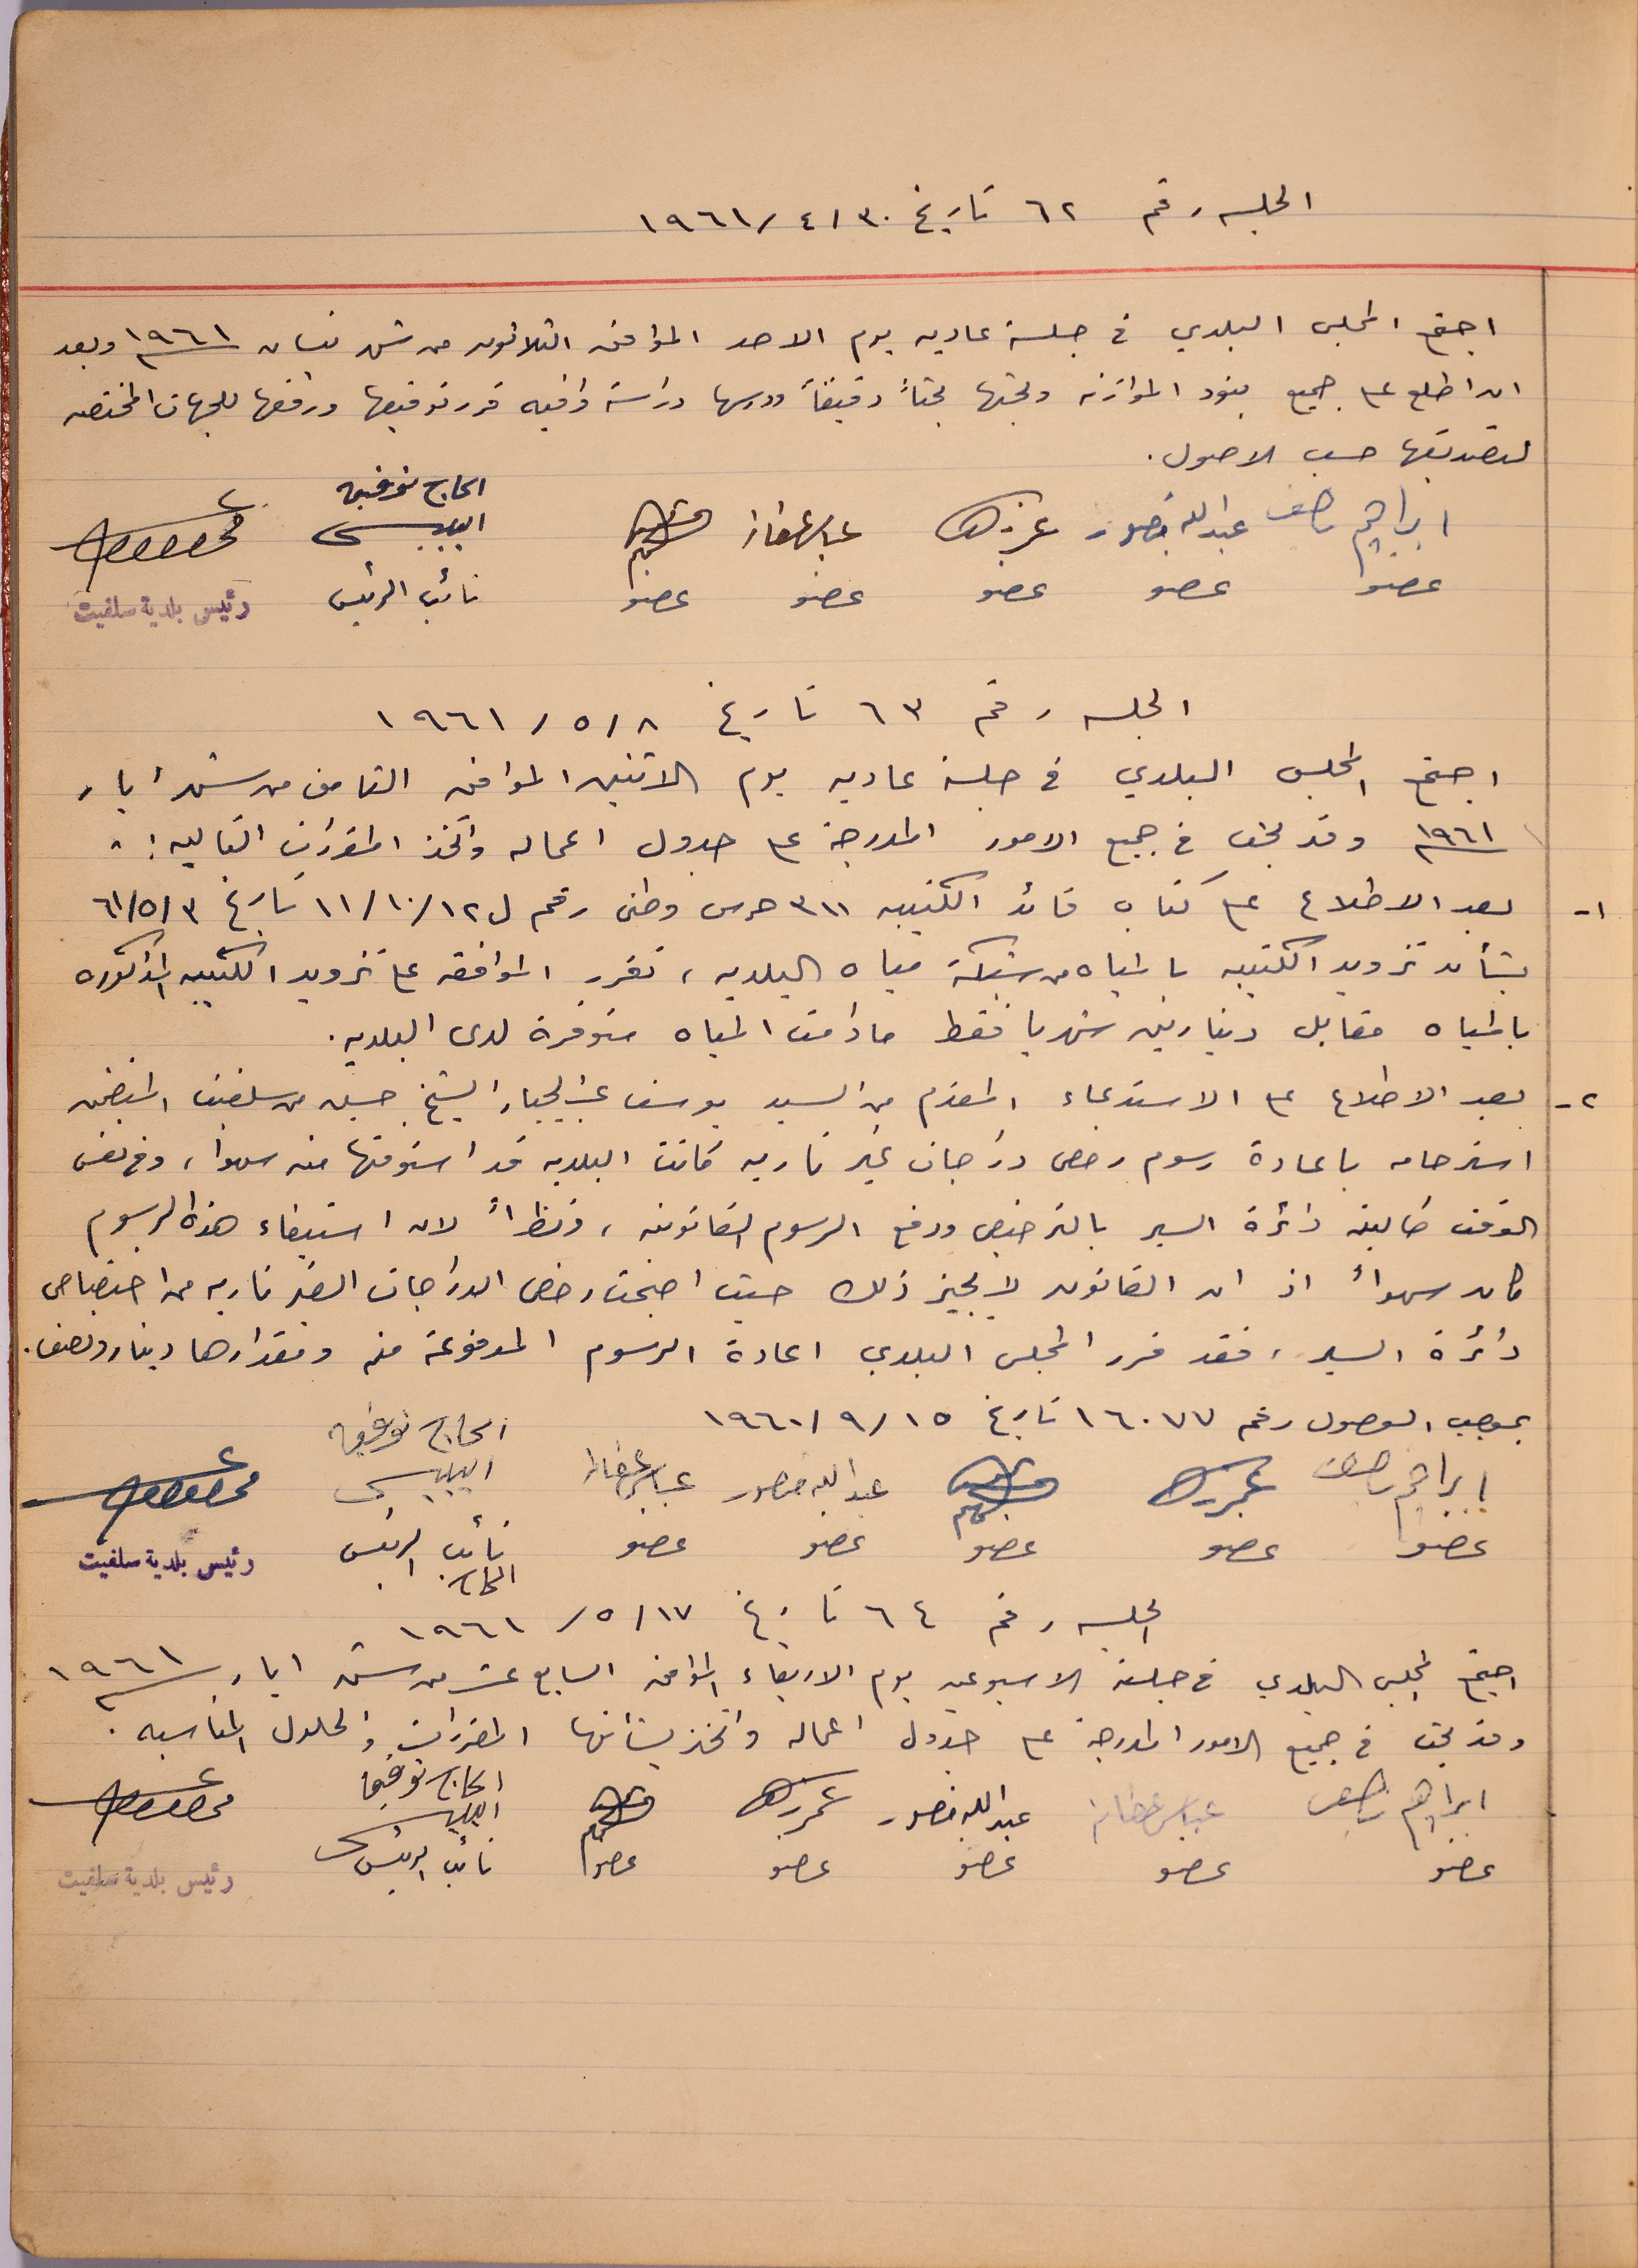 الجلسه رقم ٦٢ تاريخ ٣٠/٤/١٩٦١
اجتمع المجلس البلدي في جلسة عاديه يوم الاحد الموافق الثلاثون من شهر نيسان ١٩٦١ وبعد
ان اطلع على جميع بنود الموازنه وبحثها بحثاً دقيقاً ودرسها دراسة وافيه قرر توقيعها ورفعها للجهات المختصه
لتصديقها حسب الاصول.
ابراهيم عبدالله منصور عباس الحاج توفيق
عضو عضو عضو عضو عضو نائب الرئيس
رئيس بلدية سلفيت
الجلسه رقم ٦٣ تاريخ ٨/٥/١٩٦١
اجتمع المجلس البلدي في جلسة عاديه يوم الاثنين الموافق الثامن من شهر ايار
١٩٦١ وقد بحث في جميع الامور المدرجة على جدول اعماله واتخذ المقررات التاليه :-
١- بعد الاطلاع على كتاب قائد الكتيبه ٣١١ حرس وطني رقم ل١١/١٠/١٢ تاريخ ٦١/٥/٣
بشأن تزويد الكتيبه بالمياه من شبكة مياه البلديه ، تقرر الموافقه على تزويد الكتيبه المذكوره
بالمياه مقابل دينارين شهريا فقط ما دامت المياه متوفرة لدى البلديه.
٢- بعد الاطلاع على الاستدعاء المقدم من السيد يوسف عبدالجبار الشيخ حسين من سلفيت المتضمن
استرحامه باعادة رسوم رخص دراجات غير ناريه كانت البلديه قد استوفتها منه سهوا ، وفي نفس
الوقت طالبته دائرة السير بالترخيص ودفع الرسوم القانونيه ، ونظراً لان استيفاء هذه الرسوم
كان سهواً اذ ان القانون لا يجيز ذلك حيث اصبحت رخص الدراجات الغير ناريه من اختصاص
دائرة السير ، فقد قرر المجلس البلدي اعادة الرسوم المدفوعة منه ومقدارها دينار ونصف.
بموجب الوصول رقم ١٦٠٧٧ تاريخ ١٥/٩/١٩٦٠
ابراهيم عبدالله منصور عباس الحاج توفيق
عضو عضو عضو عضو عضو نائب الرئيس
رئيس بلدية سلفيت
الحاج
الجلسه رقم ٦٤ تاريخ ١٧/٥/١٩٦١
اجتمع المجلس البلدي في جلسته الاسبوعيه يوم الاربعاء الموافق السابع عشر من شهر ايار ١٩٦١
وقد بحث في جميع الامور المدرجة على جدول اعماله واتخذ بشأنها المقررات والحلول المناسبه .
ابراهيم عباس عبدالله منصور الحاج توفيق
عضو عضو عضو عضو عضو نائب الرئيس
رئيس بلدية سلفيت